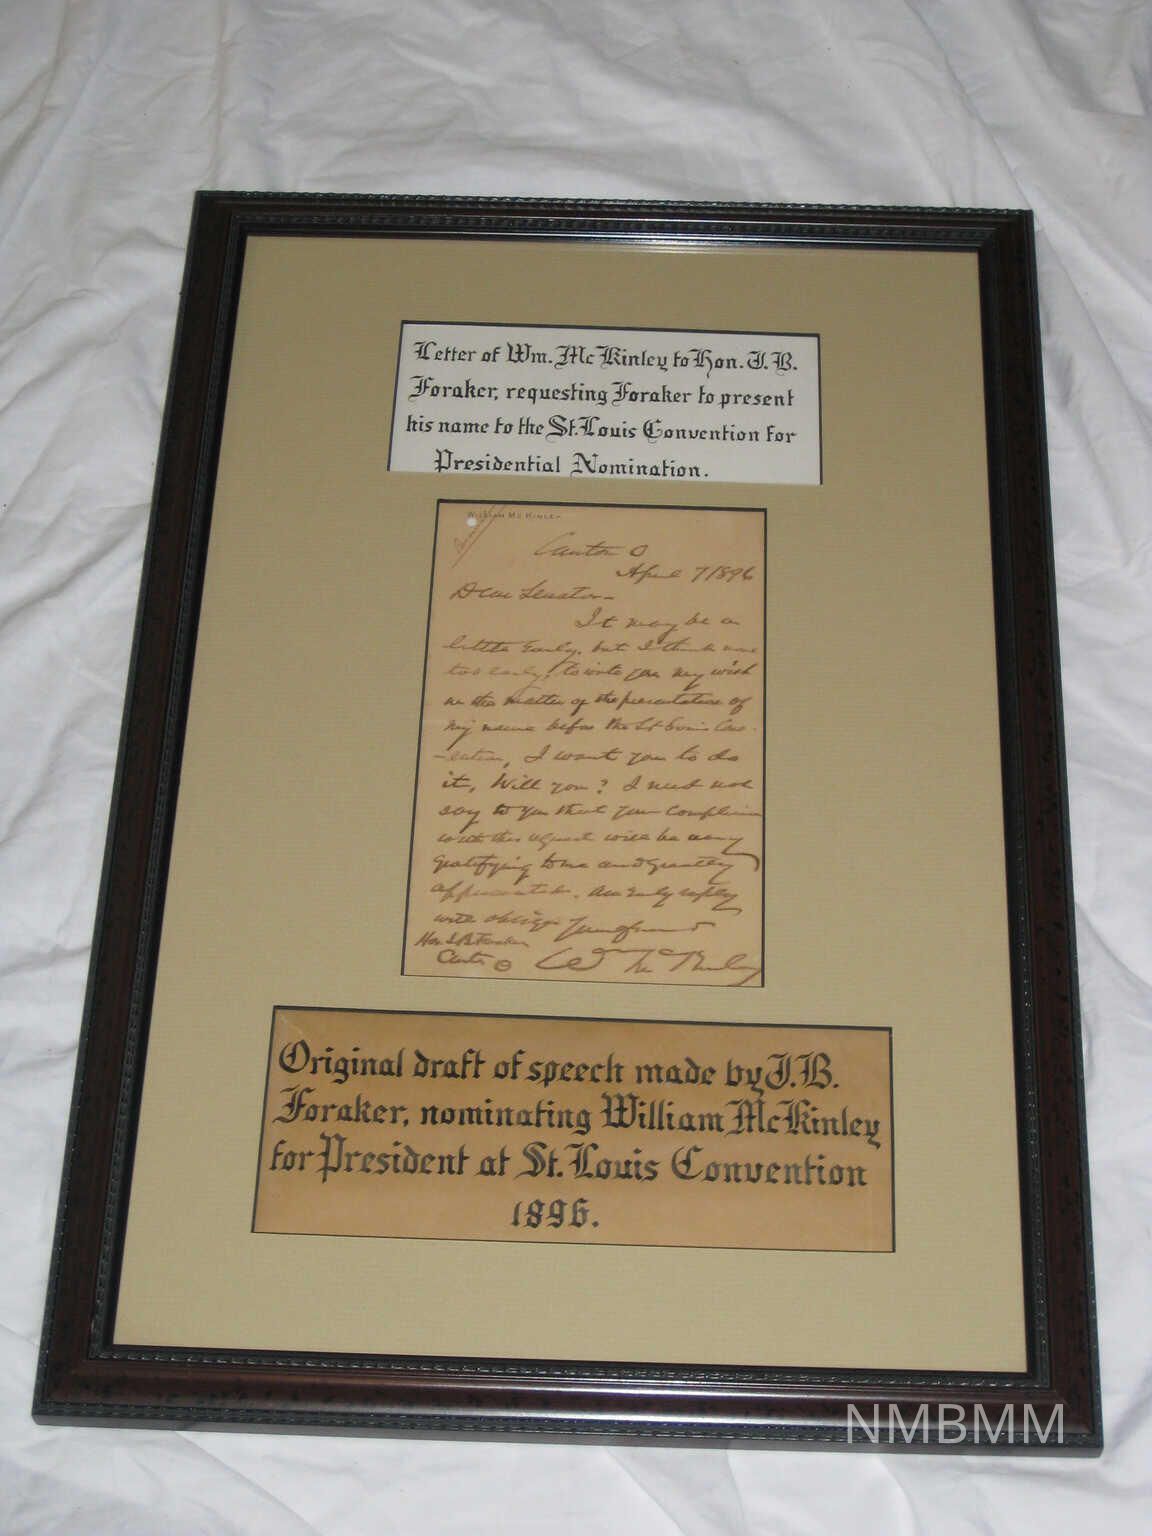 Letter of Wm. McKinley to Hon. J. B.
Foraker, requesting Foraker to present
his name to the St. Louis Convention for
Presidential Nomination.
WILLIAM MC KINLEY
Canton O
April 7/896
Dear Senator–
It may be a
little Early, but I think not
too early, to write you my wish
in the matter of the presentation of
my name before the St Louis Con-
-vention, I want you to do
it, Will you? I need not
say to you that your
with this request will be very
gratifying to me and greatly
appreciated. An Early reply
will oblige Your friend
Hon J B Foraker
O Wm McKinley
Original draft of speech made by J. B.
Foraker, nominating William McKinley
for President at St. Louis Convention
1896.
NMBMM